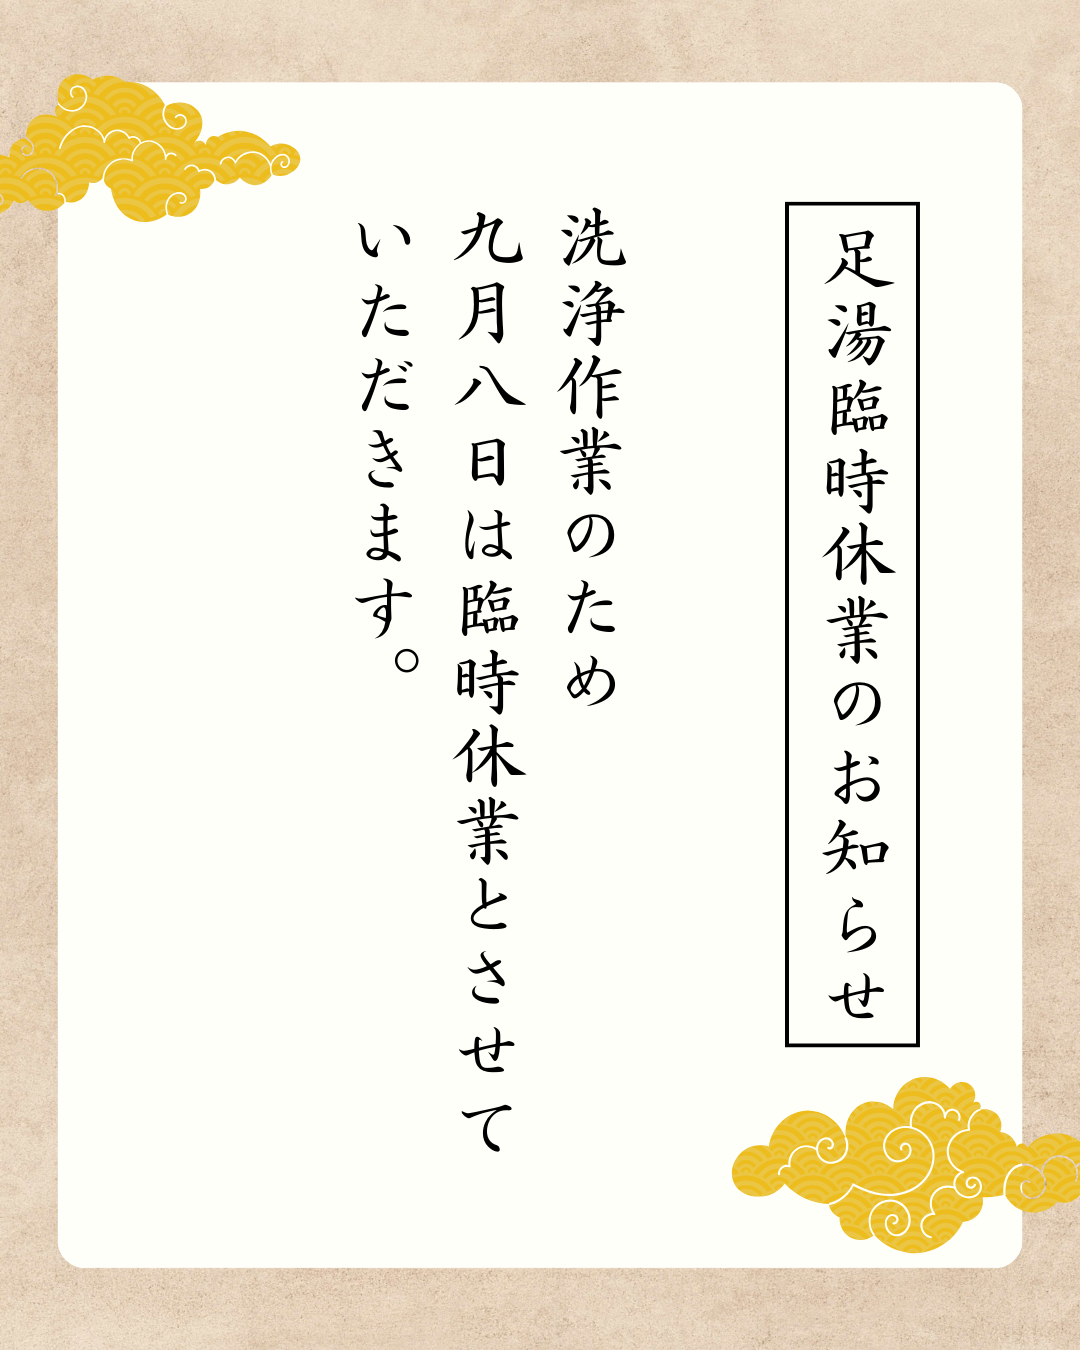 足湯臨時休業のお知らせ
洗浄作業のため
九月八日は臨時休業とさせて
いただきます。